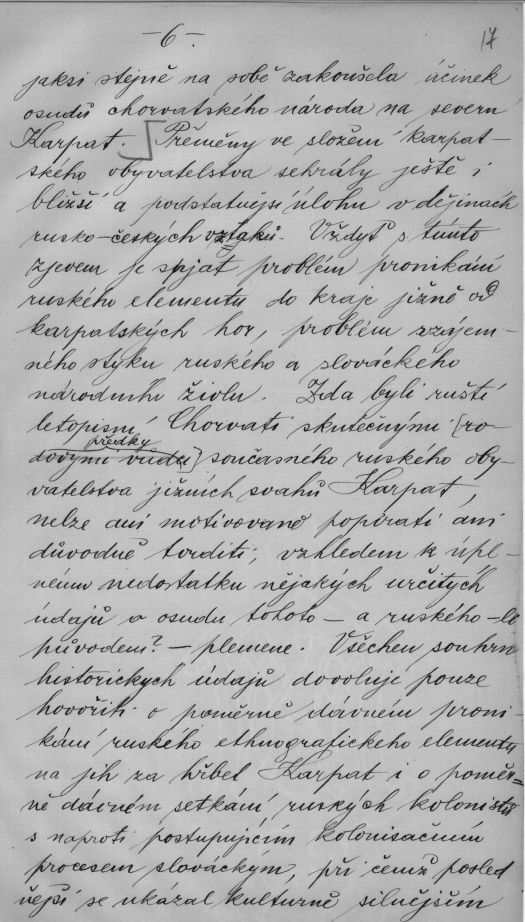 -6-. 17
jaksi stejně na sobě zakoušela účinek
osudů chorvatského národa na severu
Karpat. Přeměny ve složení karpat-
ského obyvatelstva sehrály ještě i
bližší a podstatnější úlohu v dějinách
rusko-českých vztahů. Vždyť s tímto
zjevem je spjat problém pronikání
ruského elementu do kraje jižně od
karpatských hor, problém vzájem-
ného styku ruského a slováckého
národního živlu. Zda byli ruští
letopisní Chorvati skutečnými [ro-
předky
dovými vůdci] současného ruského oby-
vatelstva jižních svahů Karpat,
nelze ani motivovaně popírati ani
důvodně tvrditi, vzhledem k úpl-
nému nedostatku nějakých určitých
údajů o osudu tohoto - a ruského-li
původem? - plemene. Všechen souhrn
historických údajů dovoluje pouze
hovořiti o poměrně dávném proni-
kání ruského ethnografického elementu
na jih za hřbet Karpat i o poměr-
ně dávném setkání ruských kolonistů
s naproti postupujícím kolonisačním
procesem slováckým, při čemž posled
nější se ukázal kulturně silnějším